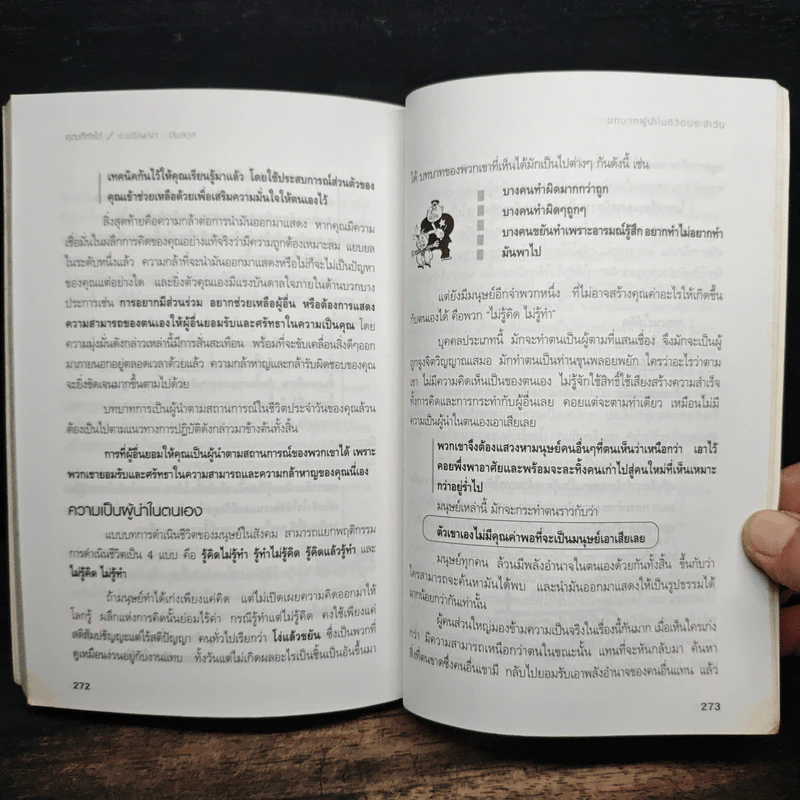 คุณก็ทำได้ /
เทคนิคกันไว้ให้คุณเรียนรู้มาแล้ว โดยใช้ประสบการณ์ส่วนตัวของ
คุณเข้าช่วยเหลือด้วยเพื่อเสริมความมั่นใจให้ตนเองไว้
สิ่งสุดท้ายคือความกล้าต่อการนำมันออกมาแสดง หากคุณมีความ
เชื่อมั่นในผลึกการคิดของคุณอย่างแท้จริงว่ามีความถูกต้องเหมาะสม แยบยล
ในระดับหนึ่งแล้ว ความกล้าที่จะนำมันออกมาแสดงหรือไม่ก็จะไม่เป็นปัญหา
ของคุณแต่อย่างใด และยิ่งตัวคุณเองมีแรงบันดาลใจภายในด้านบวกบาง
ประการเช่น การอยากมีส่วนร่วม อยากช่วยเหลือผู้อื่น หรือต้องการแสดง
ความสามารถของตนเองให้ผู้อื่นยอมรับและศรัทธาในความเป็นคุณ โดย
ความมุ่งมั่นดังกล่าวเหล่านี้มีการสั่นสะเทือน พร้อมที่จะขับเคลื่อนสิ่งดีๆออก
มาภายนอกอยู่ตลอดเวลาด้วยแล้ว ความกล้าหาญและกล้ารับผิดชอบของคุณ
จะยิ่งชัดเจนมากขึ้นตามไปด้วย
บทบาทการเป็นผู้นำตามสถานการณ์ในชีวิตประจำวันของคุณล้วน
ต้องเป็นไปตามแนวทางการปฏิบัติดังกล่าวมาข้างต้นทั้งสิ้น
การที่ผู้อื่นยอมให้คุณเป็นผู้นำตามสถานการณ์ของพวกเขาได้ เพราะ
พวกเขายอมรับและศรัทธาในความสามารถและความกล้าหาญของคุณนี่เอง
ความเป็นผู้นำในตนเอง
แบบบทการดำเนินชีวิตของมนุษย์ในสังคม สามารถแยกพฤติกรรม
การดำเนินชีวิตเป็น 4 แบบ คือ รู้คิดไม่รู้ทำ รู้ทำไม่รู้คิด รู้คิดแล้วรู้ทำ และ
ไม่รู้คิด ไม่รู้ทำ
ถ้ามนุษย์ทำได้เก่งเพียงแค่คิด แต่ไม่เปิดเผยความคิดออกมาให้
โลกรู้ ผลึกแห่งการคิดนั้นย่อมไร้ค่า กรณีรู้ทำแต่ไม่รู้คิด คงใช้เพียงแค่
สติสัมปชัญญะแต่ไร้สติปัญญา คนทั่วไปเรียกว่า โง่แล้วขยัน ซึ่งเป็นพวกที่
ดูเหมือนง่วนอยู่กับงานแทบ ทั้งวันแต่ไม่เกิดผลอะไรเป็นชิ้นเป็นอันขึ้นมา
272
บทบาทผู้นำในชีวิตประจำวัน
ได้ บทบาทของพวกเขาที่เห็นได้มักเป็นไปต่างๆ กันดังนี้ เช่น
บางคนทำผิดมากกว่าถูก
บางคนทำผิดๆถูกๆ
บางคนขยันทำเพราะอารมณ์รู้สึก อยากทำไม่อยากทำ
มันพาไป
แต่ยังมีมนุษย์อีกจำพวกหนึ่ง ที่ไม่อาจสร้างคุณค่าอะไรให้เกิดขึ้น
กับตนเองได้ คือพวก “ไม่รู้คิด ไม่รู้ทำ”
บุคคลประเภทนี้ มักจะทำตนเป็นผู้ตามที่แสนเชื่อง จึงมักจะเป็นผู้
ถูกจูงจิตวิญญาณเสมอ มักทำตนเป็นท่านขุนพลอยพยัก ใครว่าอะไรว่าตาม
เขา ไม่มีความคิดเห็นเป็นของตนเอง ไม่รู้จักใช้สิทธิ์ใช้เสียงสร้างความสำเร็จ
ทั้งการคิดและการกระทำกับผู้อื่นเลย คอยแต่จะตามท่าเดียว เหมือนไม่มี
ความเป็นผู้นำในตนเองเอาเสียเลย
พวกเขาจึงต้องแสวงหามนุษย์คนอื่นๆที่ตนเห็นว่าเหนือกว่า เอาไว้
คอยพึ่งพาอาศัยและพร้อมจะละทิ้งคนเก่าไปสู่คนใหม่ที่เห็นเหมาะ
กว่าอยู่ร่ำไป
มนุษย์เหล่านี้ มักจะกระทำตนราวกับว่า
ตัวเขาเองไม่มีคุณค่าพอที่จะเป็นมนุษย์เอาเสียเลย
มนุษย์ทุกคน ล้วนมีพลังอำนาจในตนเองด้วยกันทั้งสิ้น ขึ้นกับว่า
ใครสามารถจะค้นหามันได้พบ และนำมันออกมาแสดงให้เป็นรูปธรรมได้
มากน้อยกว่ากันเท่านั้น
ผู้คนส่วนใหญ่มองข้ามความเป็นจริงในเรื่องนี้กันมาก เมื่อเห็นใครเก่ง
กว่า มีความสามารถเหนือกว่าตนในขณะนั้น แทนที่จะหันกลับมา ค้นหา
สิ่งที่ตนขาดซึ่งคนอื่นเขามี กลับไปยอมรับเอาพลังอำนาจของคนอื่นแทน แล้ว
273